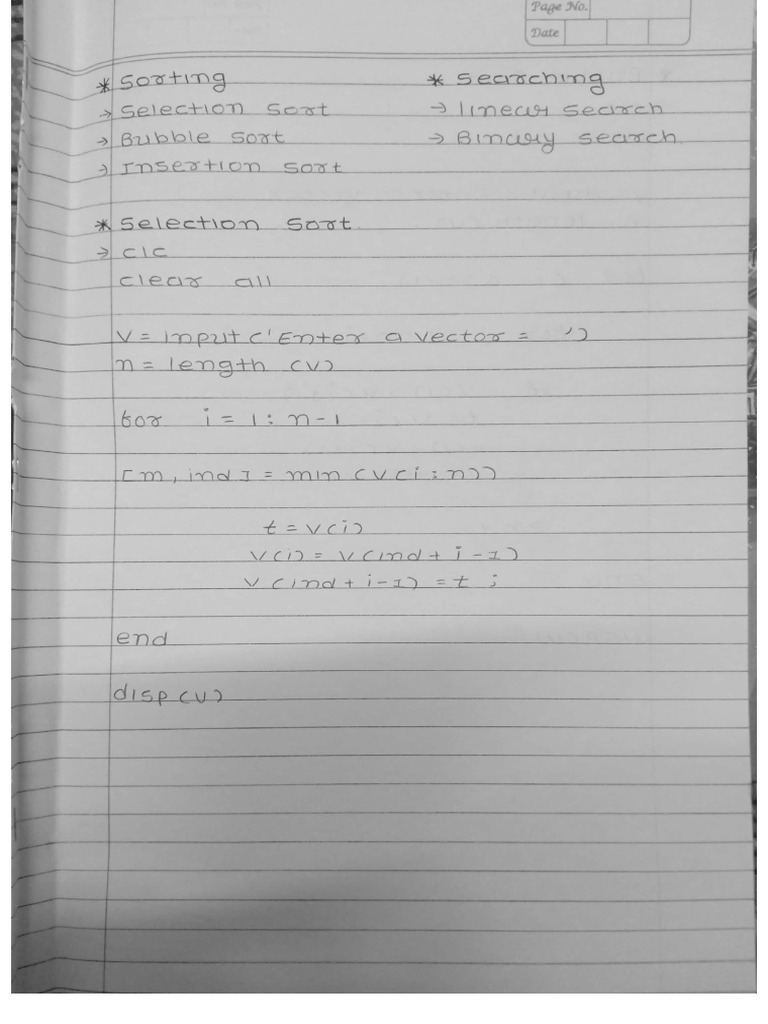 Page No.
Date
* Sorting
→ Selection Sort
→ Bubble Sort
→ Insertion Sort
* Searching
→ linear search
→ Binary search
* Selection Sort
→ clc
clear all
V = input ('Enter a vector = ')
n = length (V)
for i = 1 : n-1
[m, ind] = min (V(i : n))
t = V(i)
V(i) = V(ind + i - 1)
V (ind + i-1) = t ;
end
disp (V)